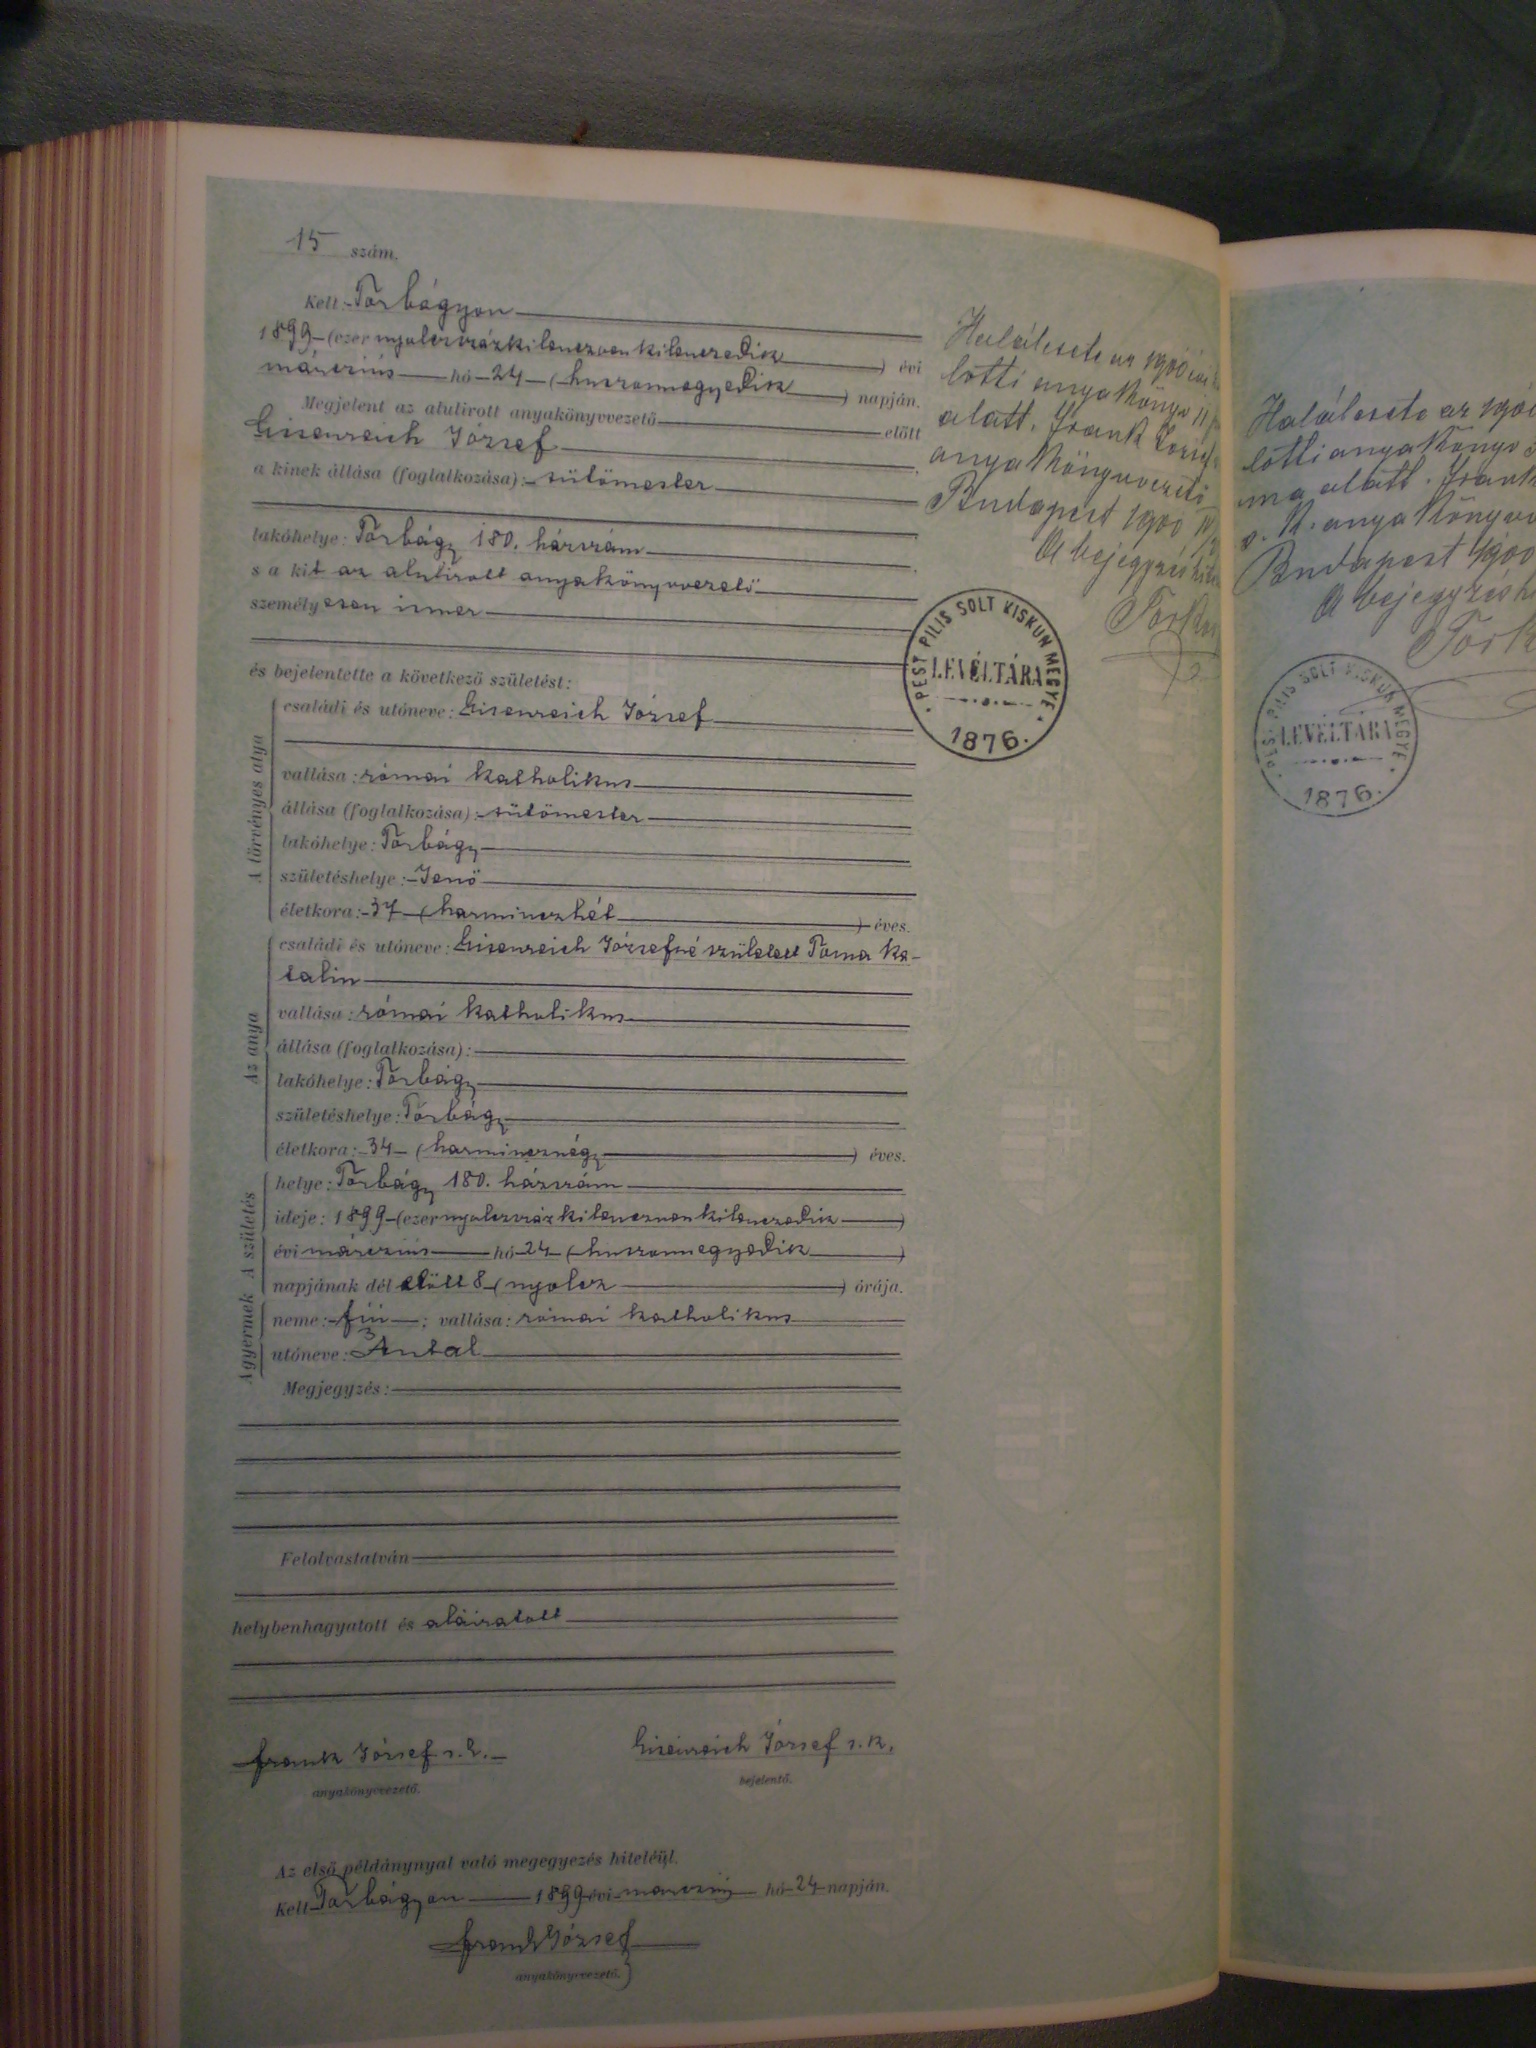 15 szám.
Kelt: Torbágyon
1899 (ezer nyolczszázkilenczvenkilenczedik) évi
márczius hó 24 (huszonnegyedik) napján.
Megjelent az alulirott anyakönyvvezető előtt
Eisenreich József
a kinek állása (foglalkozása): sütőmester
lakóhelye: Torbágy 180. házszám
s a kit az alulirott anyakönyvvezető
személyesen ismer
és bejelentette a következő születést:
A törvényes atya
családi és utóneve: Eisenreich József
vallása: római katholikus
állása (foglalkozása): sütőmester
lakóhelye: Torbágy
születéshelye: Jenő
életkora: 37 (harminczhét) éves.
Az anya
családi és utóneve: Eisenreich Józsefné született Toma Ka-
talin
vallása: római katholikus
állása (foglalkozása):
lakóhelye: Torbágy
születéshelye: Torbágy
életkora: 34 (harmincznégy) éves.
A születés
helye: Torbágy 180. házszám
ideje: 1899 (ezer nyolczszázkilenczvenkilenczedik)
évi márczius hó 24 (huszonnegyedik)
napjának dél előtt 8 (nyolcz) órája.
A gyermek
neme: fiú; vallása: római katholikus
utóneve: Antal
Megjegyzés:
Felolvastatván
helybenhagyatott és aláiratott
Frank József s. k.
anyakönyvvezető.
Eisenreich József s. k.
bejelentő.
Az első példánynyal való megegyezés hiteléül.
Kelt Torbágyon 1899 évi márczius hó 24 napján.
Frank József
anyakönyvvezető.
Halálesete az 1900
lotti anyakönyv
alatt. Frank József
anyakönyvvezető
Budapest 1900 IV
A bejegyzés
PEST PILIS SOLT KISKUN MEGYE
LEVÉLTÁRA
1876.
Halálesete az 190
lotti anyakönyv
ma alatt. Frank
s. k. anyakönyv
Budapest 1900
A bejegyzés
PEST PILIS SOLT KISKUN MEGYE
LEVÉLTÁRA
1876.